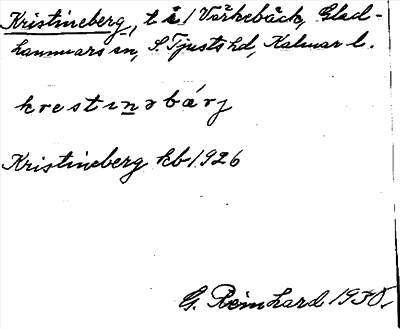 Kristineberg, t å 1 Vårkebäck, Glad-
hammars sn, S Tjusts hd, Kalmar l.
krestinəbárj
Kristineberg kb 1926
G. Reinhard 1930.